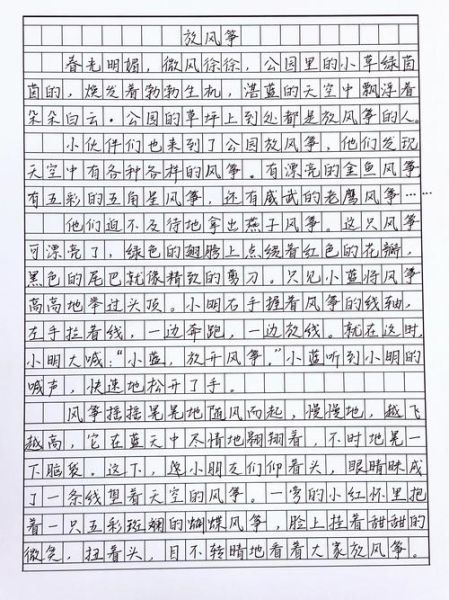 放风筝
春光明媚，微风徐徐，公园里的小草绿茵
茵的，焕发着勃勃生机，湛蓝的天空中飘浮着
朵朵白云。公园的草坪上到处都是放风筝的人。
小伙伴们也来到了公园放风筝，他们发现
天空中有各种各样的风筝。有漂亮的金鱼风筝
有五彩的五角星风筝，还有威武的老鹰风筝……
他们迫不及待地拿出燕子风筝。这只风筝
可漂亮了，绿色的翅膀上点缀着红色的花瓣，
黑色的尾巴就像精致的剪刀。只见小蓝将风筝
高高地举过头顶。小明右手握着风筝的线轴，
左手拉着线，一边奔跑，一边放线。就在这时，
小明大喊：“小蓝，放开风筝。”小蓝听到小明的
喊声，快速地松开了手。
风筝摇摇晃晃地随风而起，慢慢地，越飞
越高，它在蓝天中尽情地翱翔着，不时地晃一
下脑袋。这下，小朋友们仰着头，眼睛眯成
了一条线望着天空的风筝。一旁的小红怀里抱
着一只五彩斑斓的蝴蝶风筝，脸上挂着甜甜的
微笑，扭着头，目不转睛地看着大家放风筝。